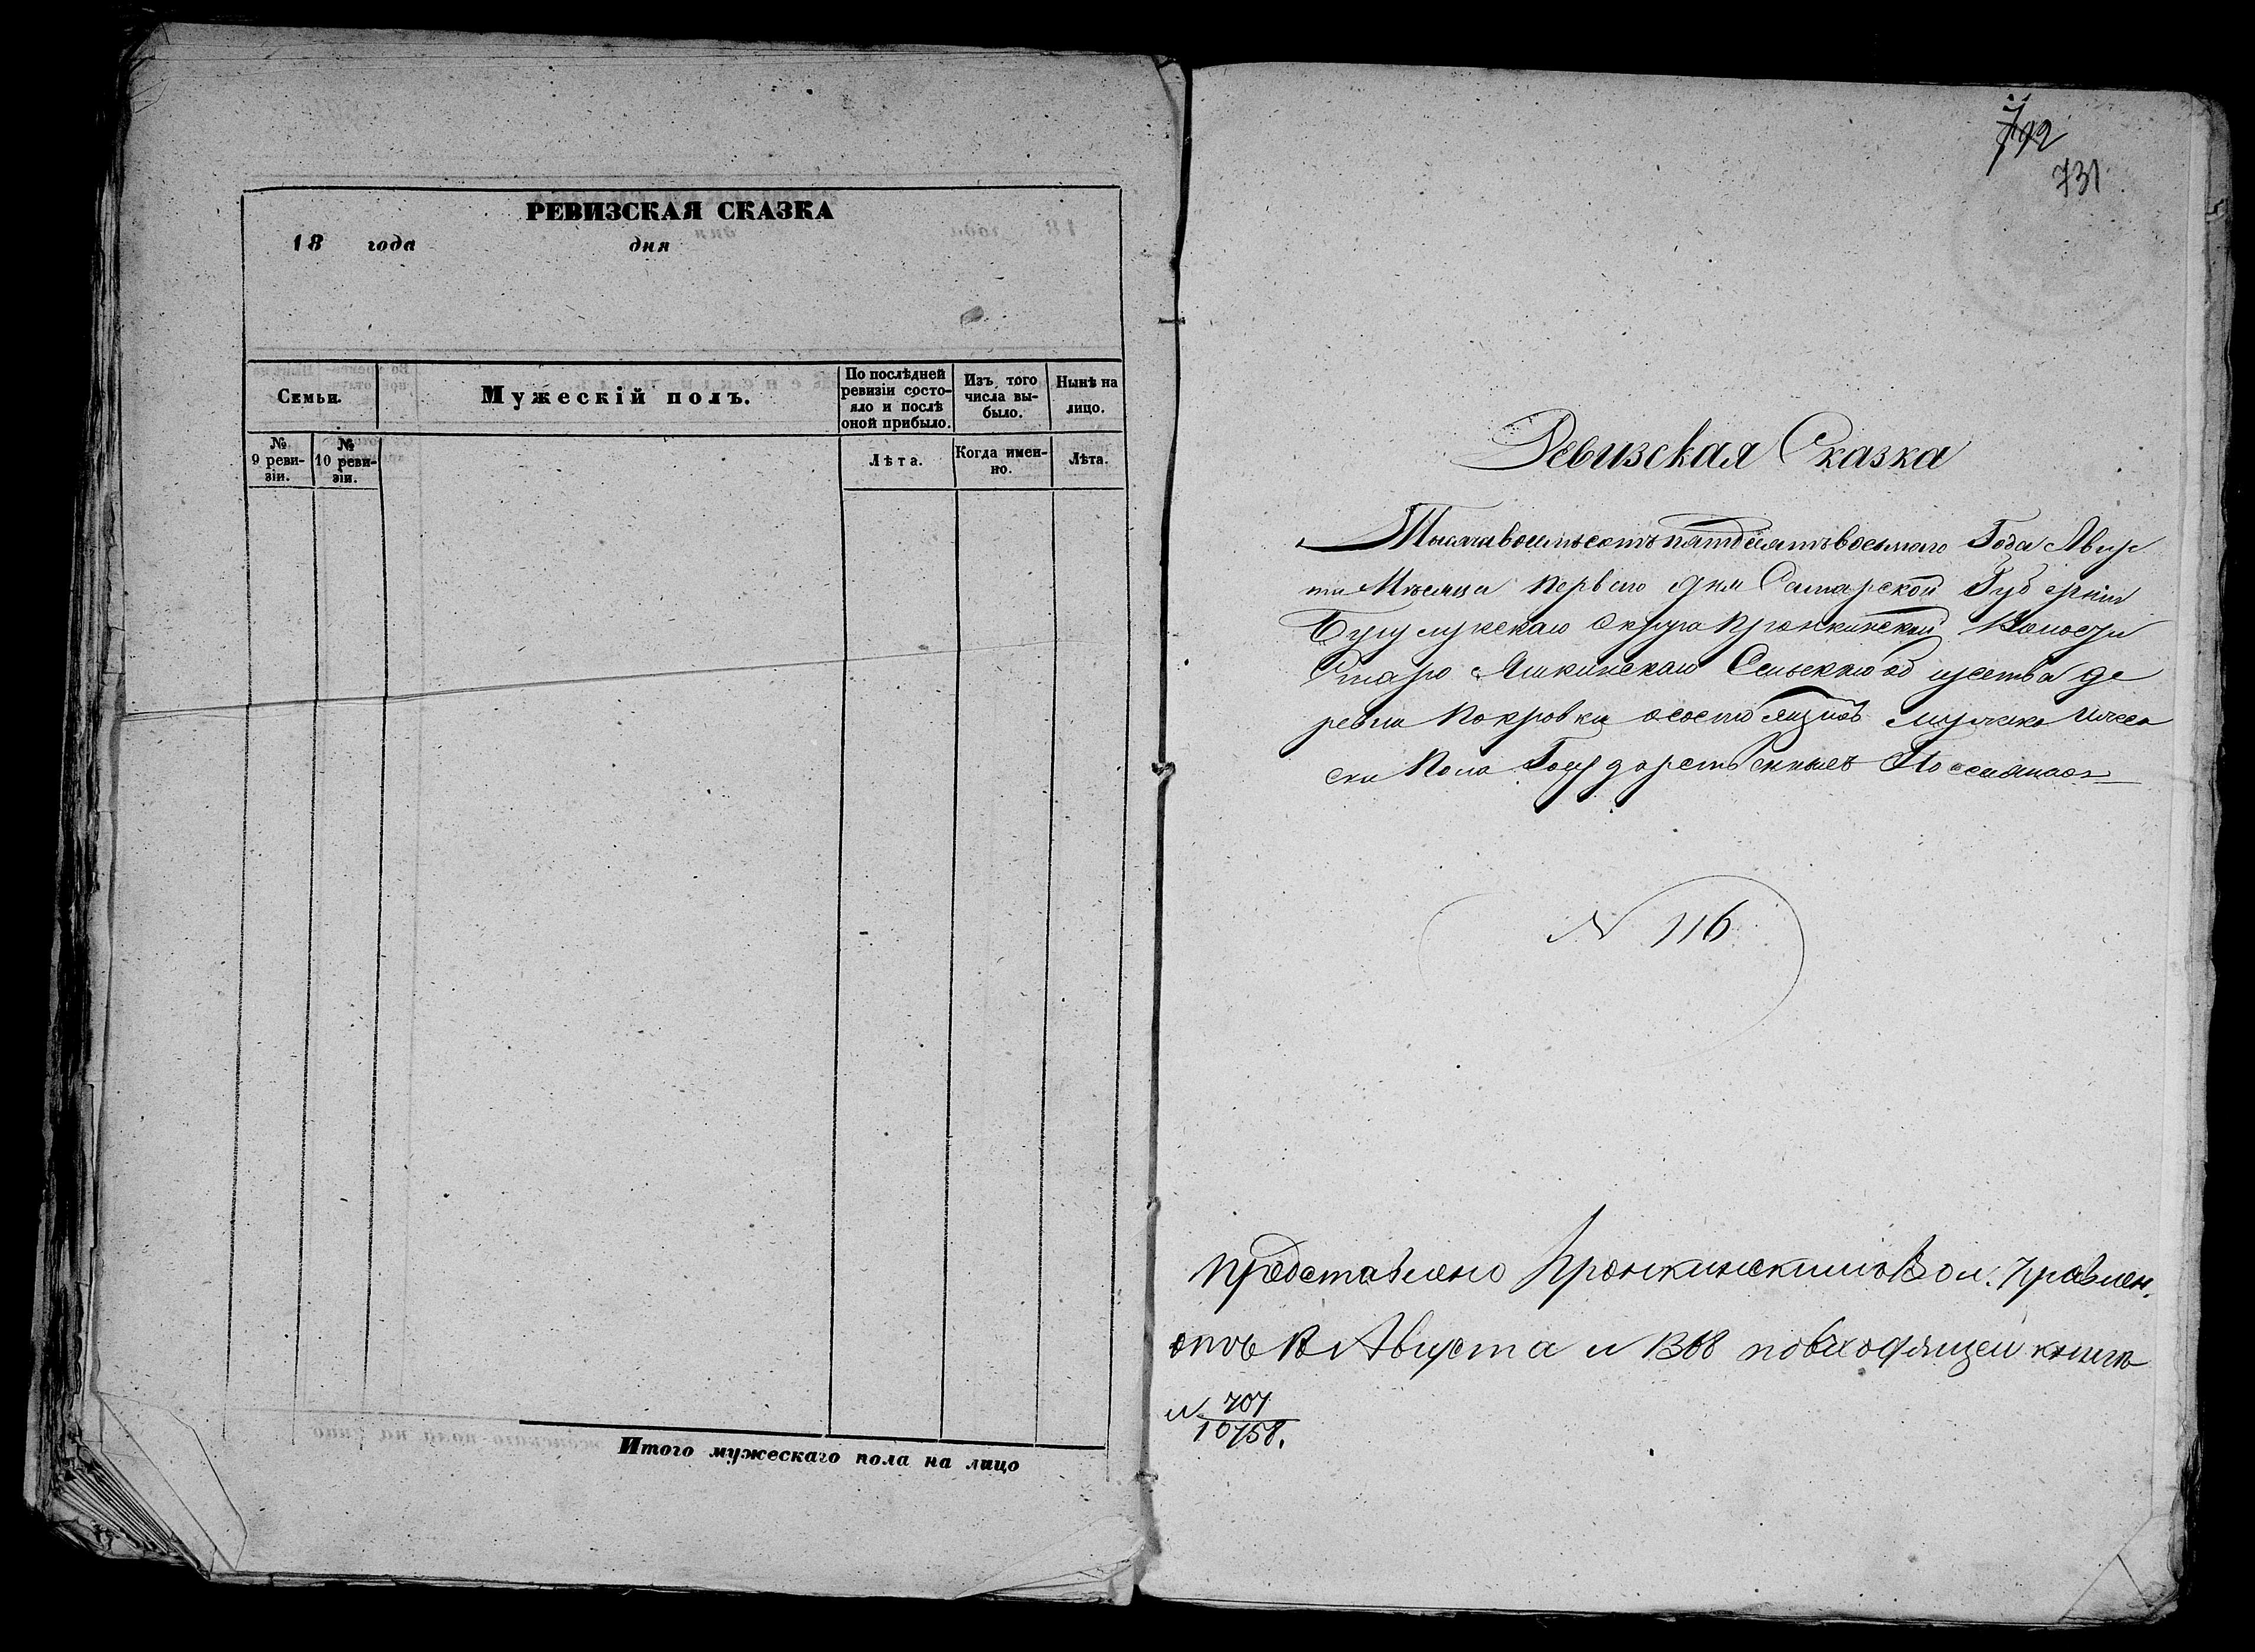 РЕВИЗСКАЯ СКАЗКА
18 года дня
Семьи.
Мужескій полъ.
По послѣдней ревизіи состо-яло и послѣ оной прибыло.
Изъ того числа вы-было.
Нынѣ на лицо.
№ 9 реви-зіи.
№ 10 реви-зіи.
Лѣта.
Когда имен-но.
Лѣта.
Итого мужескаго пола на лицо
731
Ревизская Сказка
Тысяча восемьсотъ пятдесятъ восьмаго Года Авгус
та Мѣсяца Первого дня Самарской Губерніи
Бугульмскаго Округа Пронкинской Волости
Старо Яшкинскаго Сельскаго об щества де
ревни Покровки о состоящихъ мужска
Пола Государственныхъ Поселянахъ
N 116
Представлено Пронкинскимъ Вол. Правлен.
отъ Августа N 1368 по входящей книгѣ
N 707
10758.